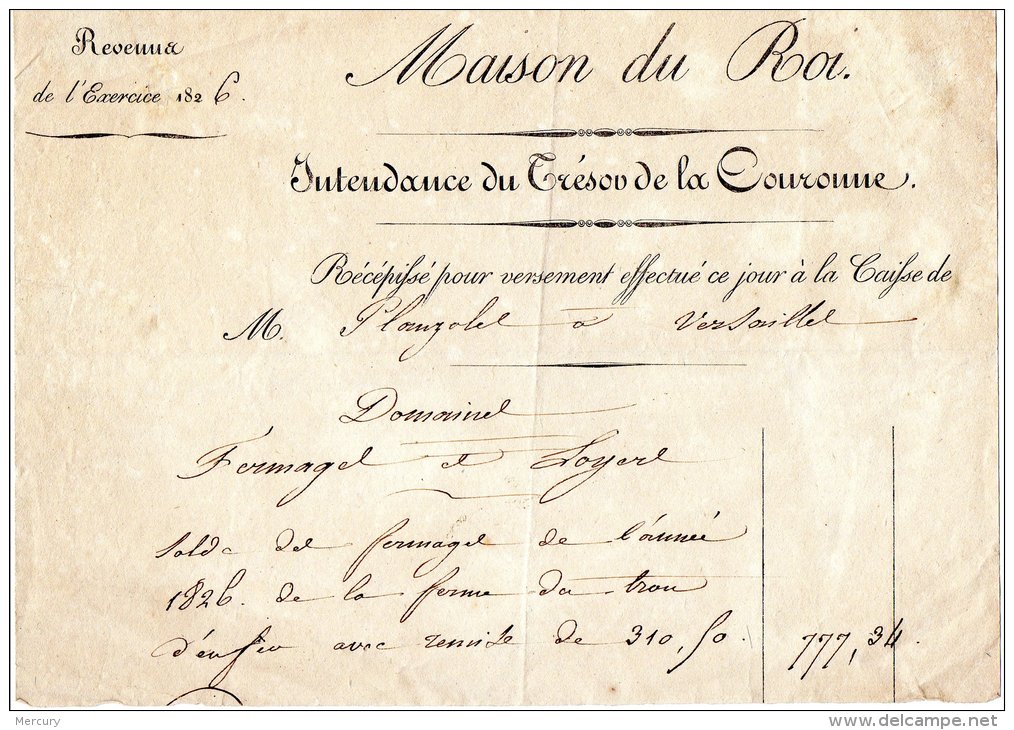 Revenus
de l'Exercice 1826.
Maison du Roi.
Intendance du Trésor de la Couronne.
Récépissé pour versement effectué ce jour à la Caisse de
M. Plauzoles à Versailles
Domaines
Fermages et Loyers
Solde des fermages de l'année
1826. de la ferme du trou
d'enfer avec remise de 310,50. 777,34
Mercury
delcampe.net